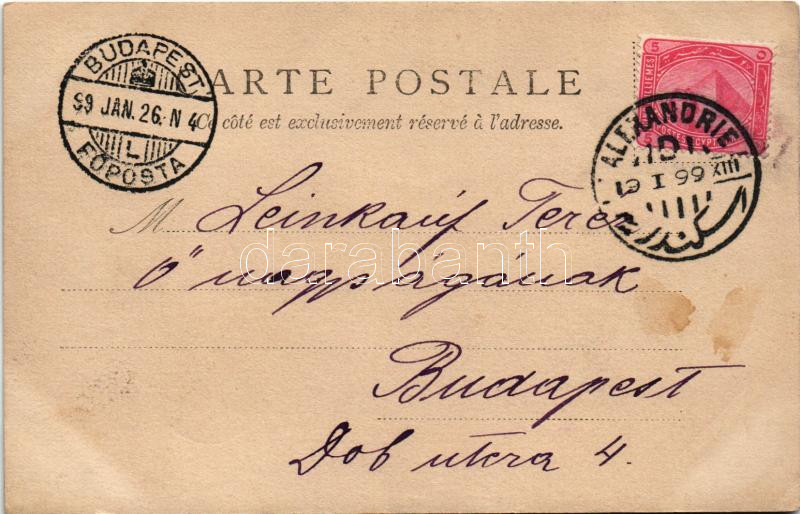 CARTE POSTALE
Ce côté est exclusivement réservé à l'adresse.
BUDAPEST
99 JAN. 26. N 4
L
FŐPOSTA
5
٥
POSTES EGYPT
ALEXANDRIE
19 I 99 XIII
اسكندرية
M. Leinkauf Terez
Ő nagyságának
Budapest
Dob utcza 4.
darabanth